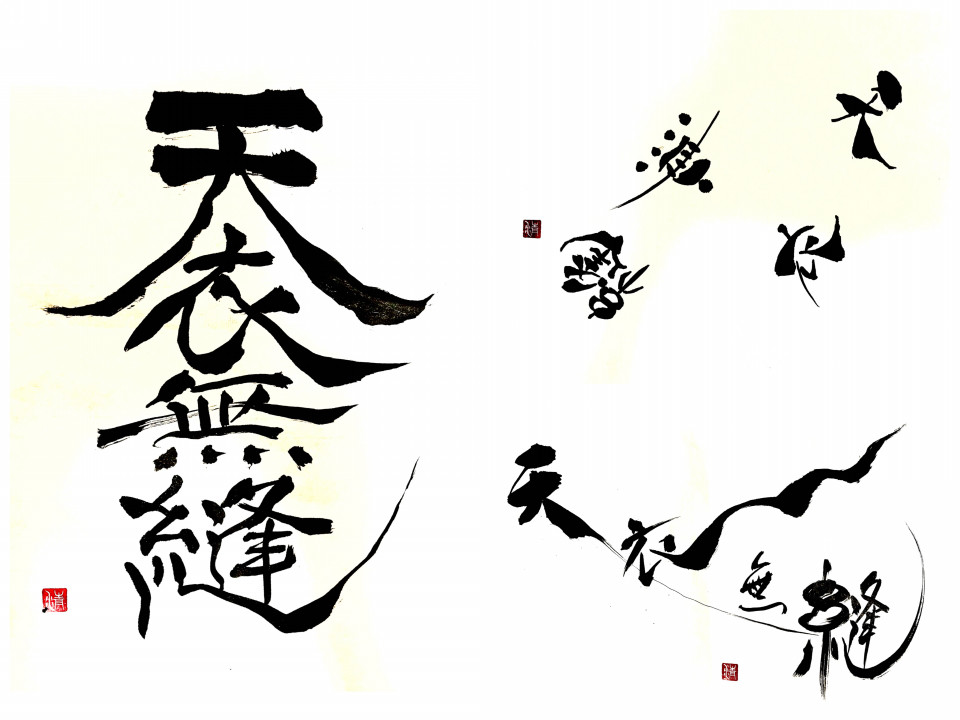 天衣無縫
天衣無縫
天衣無縫